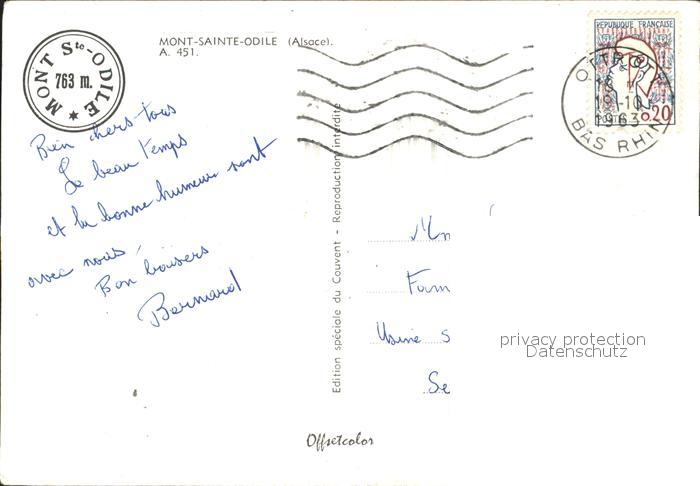 MONT Ste-ODILE
763 m.
MONT-SAINTE-ODILE (Alsace).
A. 451.
REPUBLIQUE FRANÇAISE
0,20
OTTROTT
18 H
19-10
1963
BAS RHIN
Bien chers tous
Le beau temps
et la bonne humeur sont
avec nous.
Bon baisers
Bernard
Edition spéciale du Couvent - Reproduction interdite
Mr
Fam
Usine S
Se
privacy protection
Datenschutz
Offsetcolor